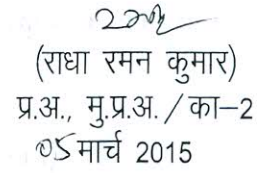 (राधा रमन कुमार)
प्र.अ., मु.प्र.अ. / का–2
05 मार्च 2015